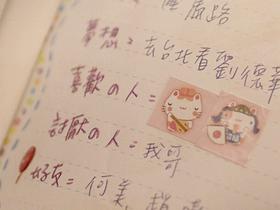 風路
夢想：去台北看劉德華
喜歡の人＝
討厭の人＝我哥
好友＝何美